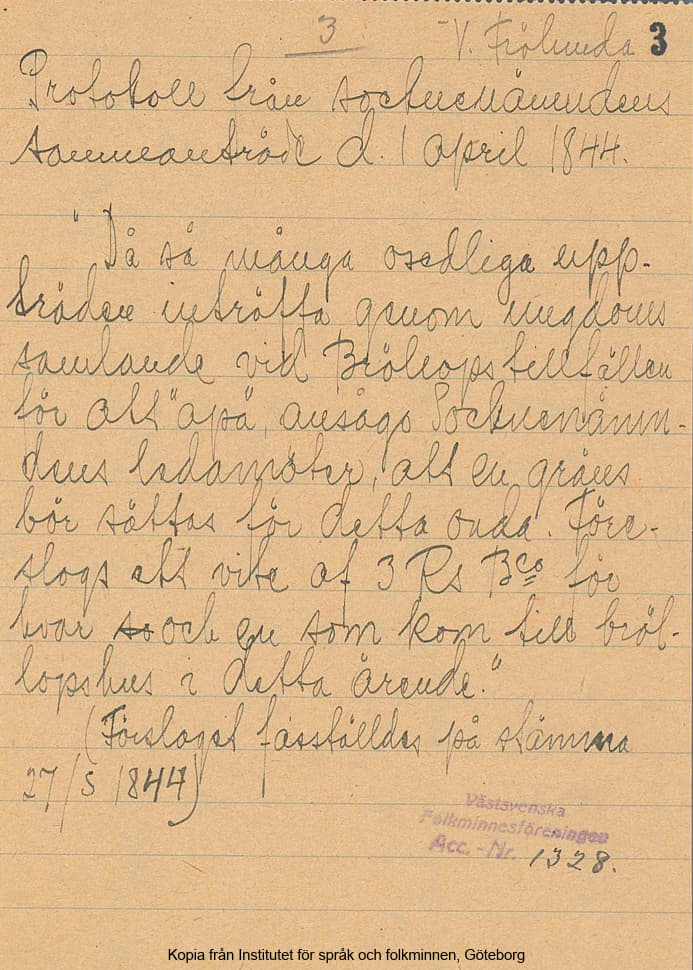 3 V. Frölunda 3
Protokoll från socknenämndens
sammanträde d. 1 april 1844.
"Då så många osedliga upp-
träden inträffa genom ungdoms
samlande vid Bröllopstillfällen
för att "apa", ansågo Socknenämn-
dens ledamöter, att en gräns
bör sättas för detta onda. Före-
slogs ett vite af 3 Rs Bco för
hvar so och en som kom till bröl-
lopshus i detta ärende."
(Förslaget fasställdes på stämma
27/5 1844)
Västsvenska
Folkminnesföreningen
Acc. - Nr. 1328.
Kopia från Institutet för språk och folkminnen, Göteborg